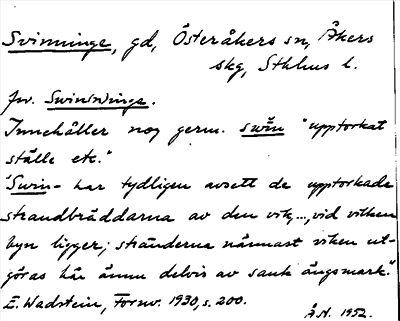 Svinninge, gd, Österåkers sn, Åkers
skg, Sthlms l.
Jw. Swinswinge.
Innehåller nog germ. swīn "upptorkat
ställe etc."
"Swin- har tydligen avsett de upptorkade
strandbräddarna av den vik..., vid vilken
byn ligger; stränderna närmast viken ut-
göras här ännu delvis av sank ängsmark."
E. Wadstein, Fornv. 1930, s. 200.
Å.N. 1952.